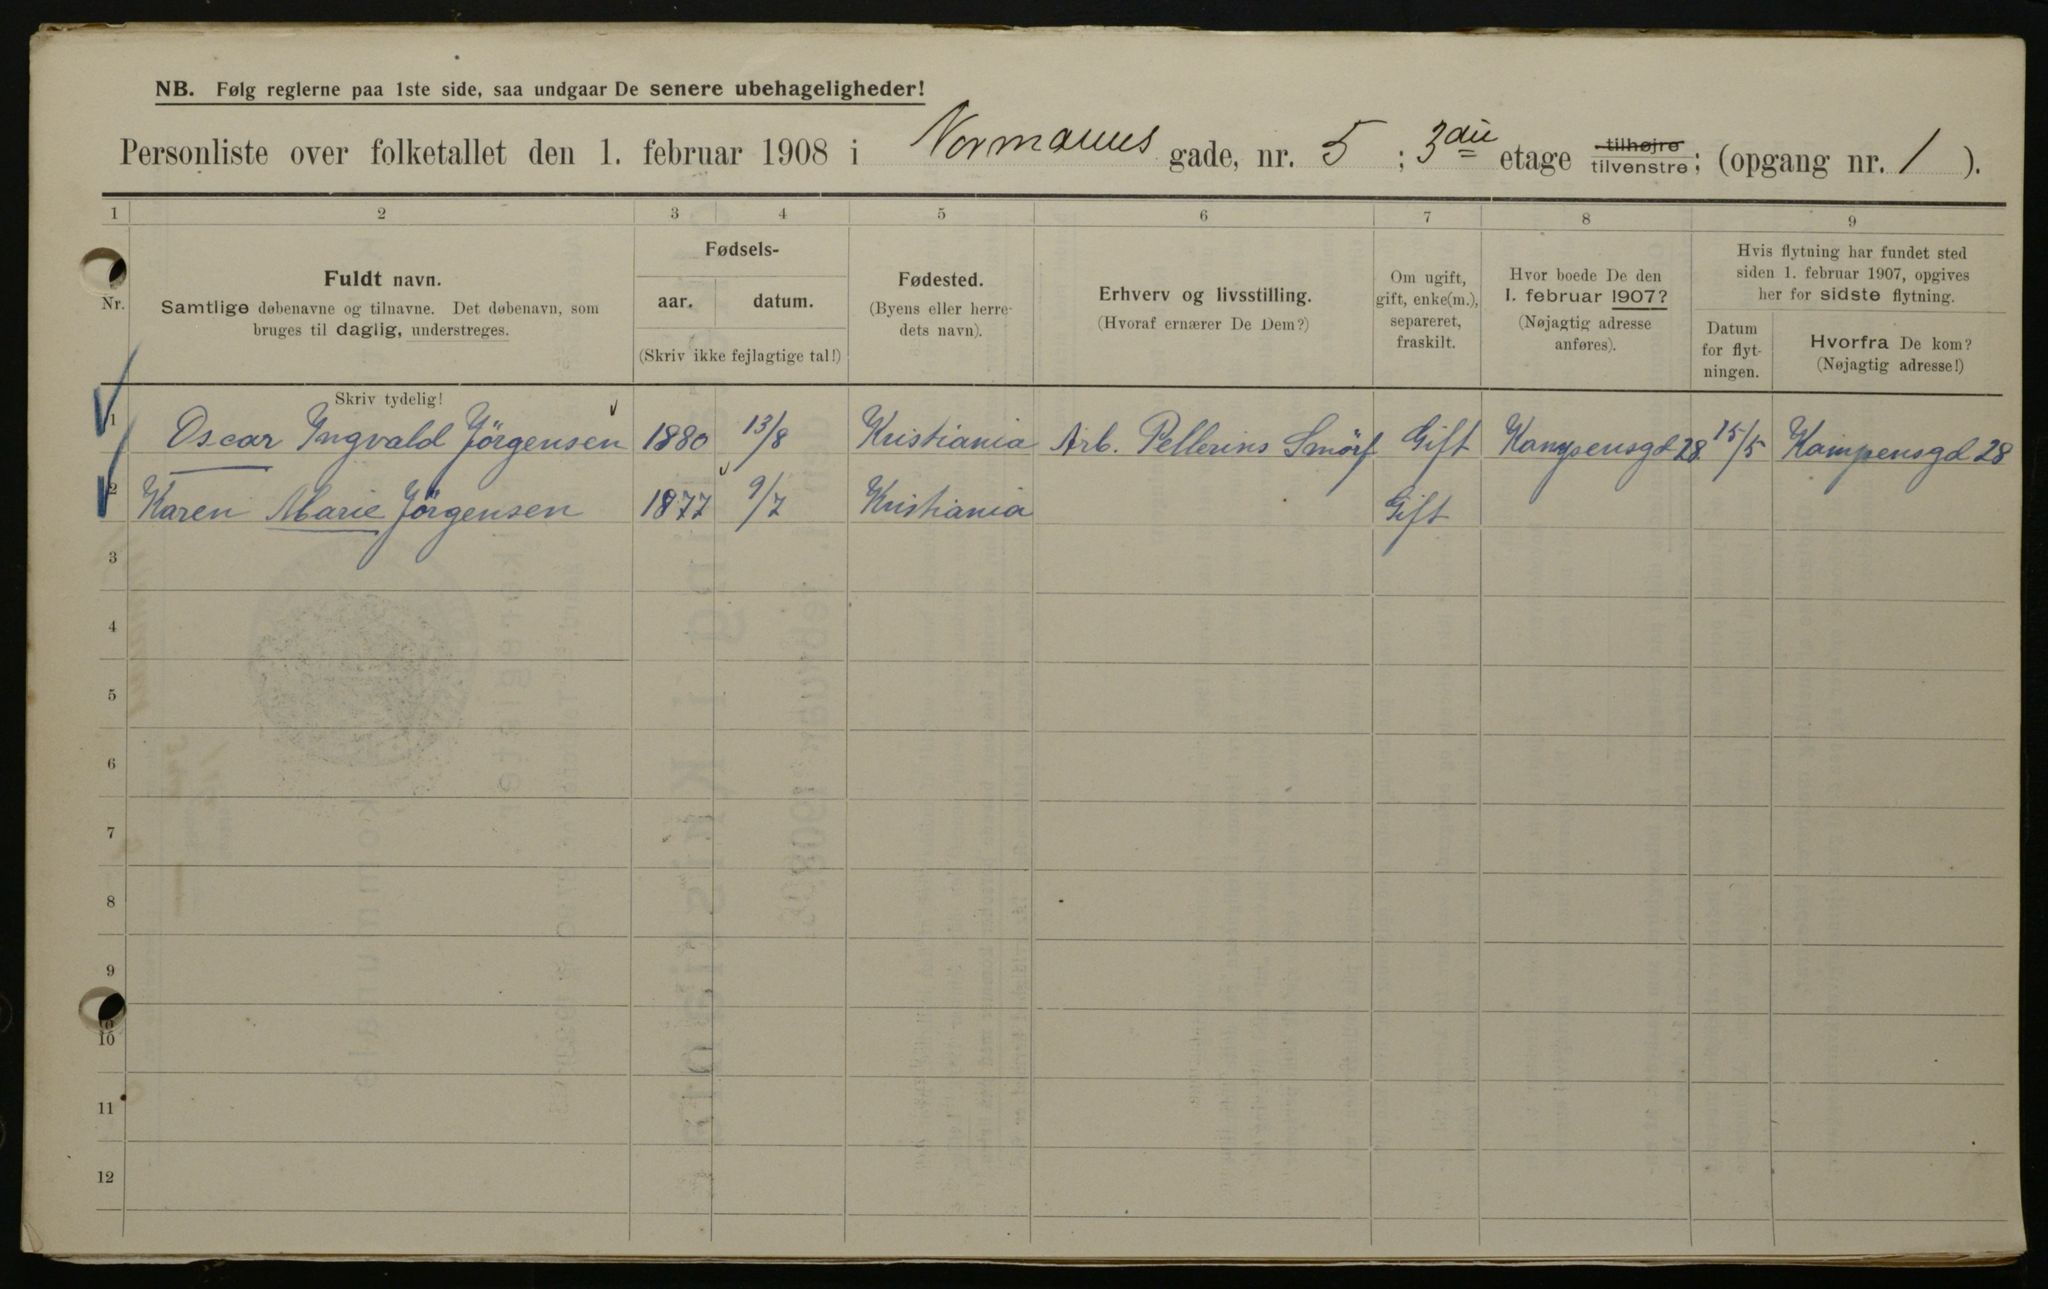 NB. Følg reglerne paa 1ste side, saa undgaar De senere ubehageligheder!
Personliste over folketallet den 1. februar 1908 i Normanns gade, nr. 5 ; 3die etage tilhøjre tilvenstre; (opgang nr. 1 ).
1 2 3 4 5 6 7 8 9
Nr.
Fuldt navn.
Samtlige døbenavne og tilnavne. Det døbenavn, som
bruges til daglig, understreges.
Fødsels-
aar. datum.
(Skriv ikke fejlagtige tal!)
Fødested.
(Byens eller herre-
dets navn).
Erhverv og livsstilling.
(Hvoraf ernærer De Dem?)
Om ugift,
gift, enke(m.),
separeret,
fraskilt.
Hvor boede De den
1. februar 1907?
(Nøjagtig adresse
anføres).
Hvis flytning har fundet sted
siden 1. februar 1907, opgives
her for sidste flytning.
Datum
for flyt-
ningen.
Hvorfra De kom?
(Nøjagtig adresse!)
Skriv tydelig!
1 Oscar Ingvald Jörgensen 1880 13/8 Kristiania Arb. Pellerins Smörf Gift Kampensgd 28 15/5 Kampensgd 28
2 Karen Marie Jörgensen 1877 9/7 Kristiania Gift
3
4
5
6
7
8
9
10
11
12